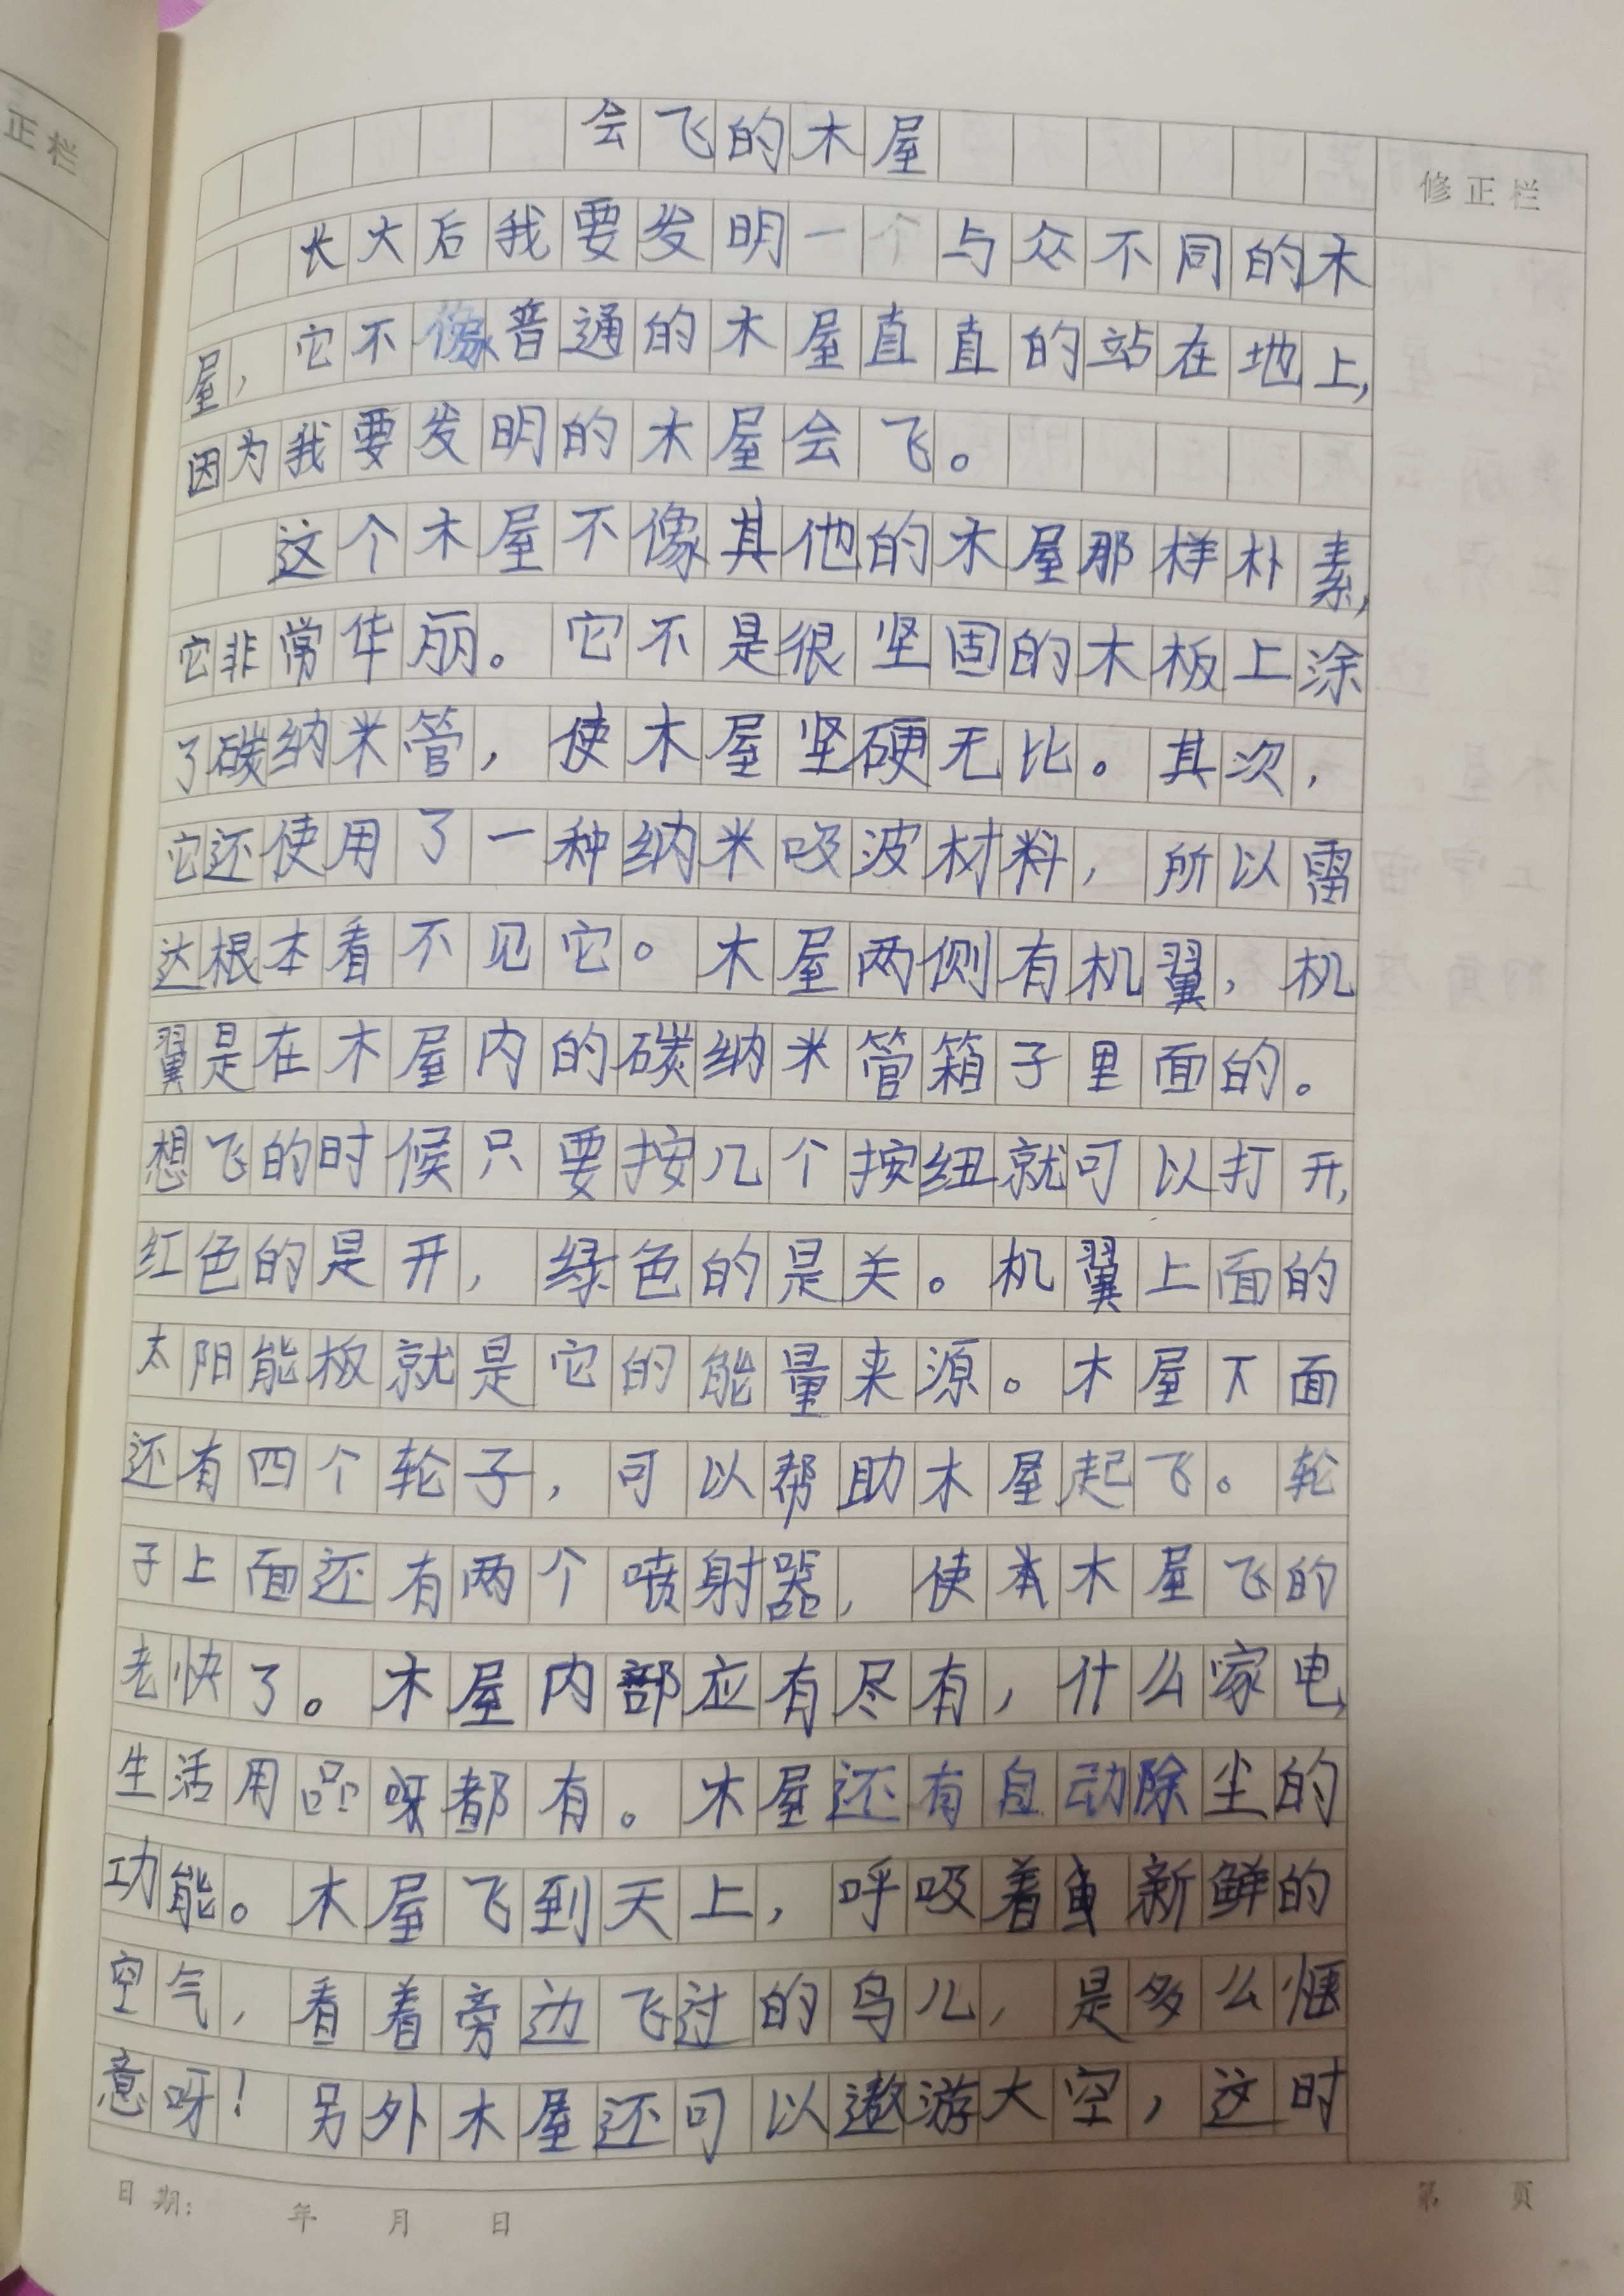 正栏
会飞的木屋
修正栏
长大后我要发明一个与众不同的木
屋，它不像普通的木屋直直的站在地上，
因为我要发明的木屋会飞。
这个木屋不像其他的木屋那样朴素，
它非常华丽。它不是很坚固的木板上涂
了碳纳米管，使木屋坚硬无比。其次，
它还使用了一种纳米吸波材料，所以雷
达根本看不见它。木屋两侧有机翼，机
翼是在木屋内的碳纳米管箱子里面的。
想飞的时候只要按几个按纽就可以打开，
红色的是开，绿色的是关。机翼上面的
太阳能板就是它的能量来源。木屋下面
还有四个轮子，可以帮助木屋起飞。轮
子上面还有两个喷射器，使木屋飞的
老快了。木屋内部应有尽有，什么家电，
生活用品呀都有。木屋还有自动除尘的
功能。木屋飞到天上，呼吸着新鲜的
空气，看着旁边飞过的鸟儿，是多么惬
意呀！另外木屋还可以遨游太空，这时
日期： 年 月 日
第 页